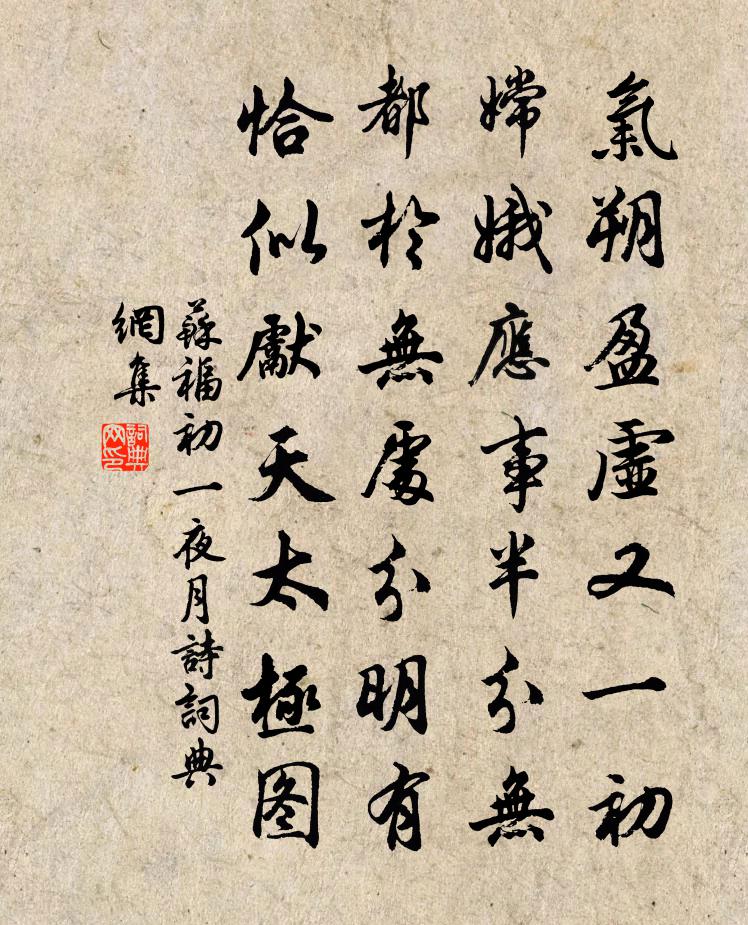 氣朔盈虛又一初
嫦娥應事半分無
都於無處分明有
恰似獻天太極图
蘇福初一夜月詩詞典
網集
詞典
网印